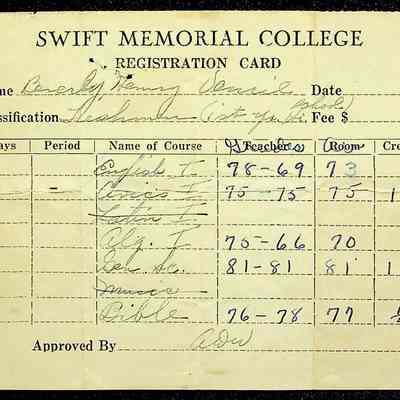 SWIFT MEMORIAL COLLEGE
REGISTRATION CARD
me Beverly, Henry Date
ssification Freshman (1st yr. Hi. School) Fee $
ays Period Name of Course Teacher Grades Room Av Cre
English I 78-69 73
- Civics I 75-75 75 1
Latin I
Alg. I 75-66 70
Gen Sc. 81-81 81 1
Music
Bible 76-78 77
Approved By